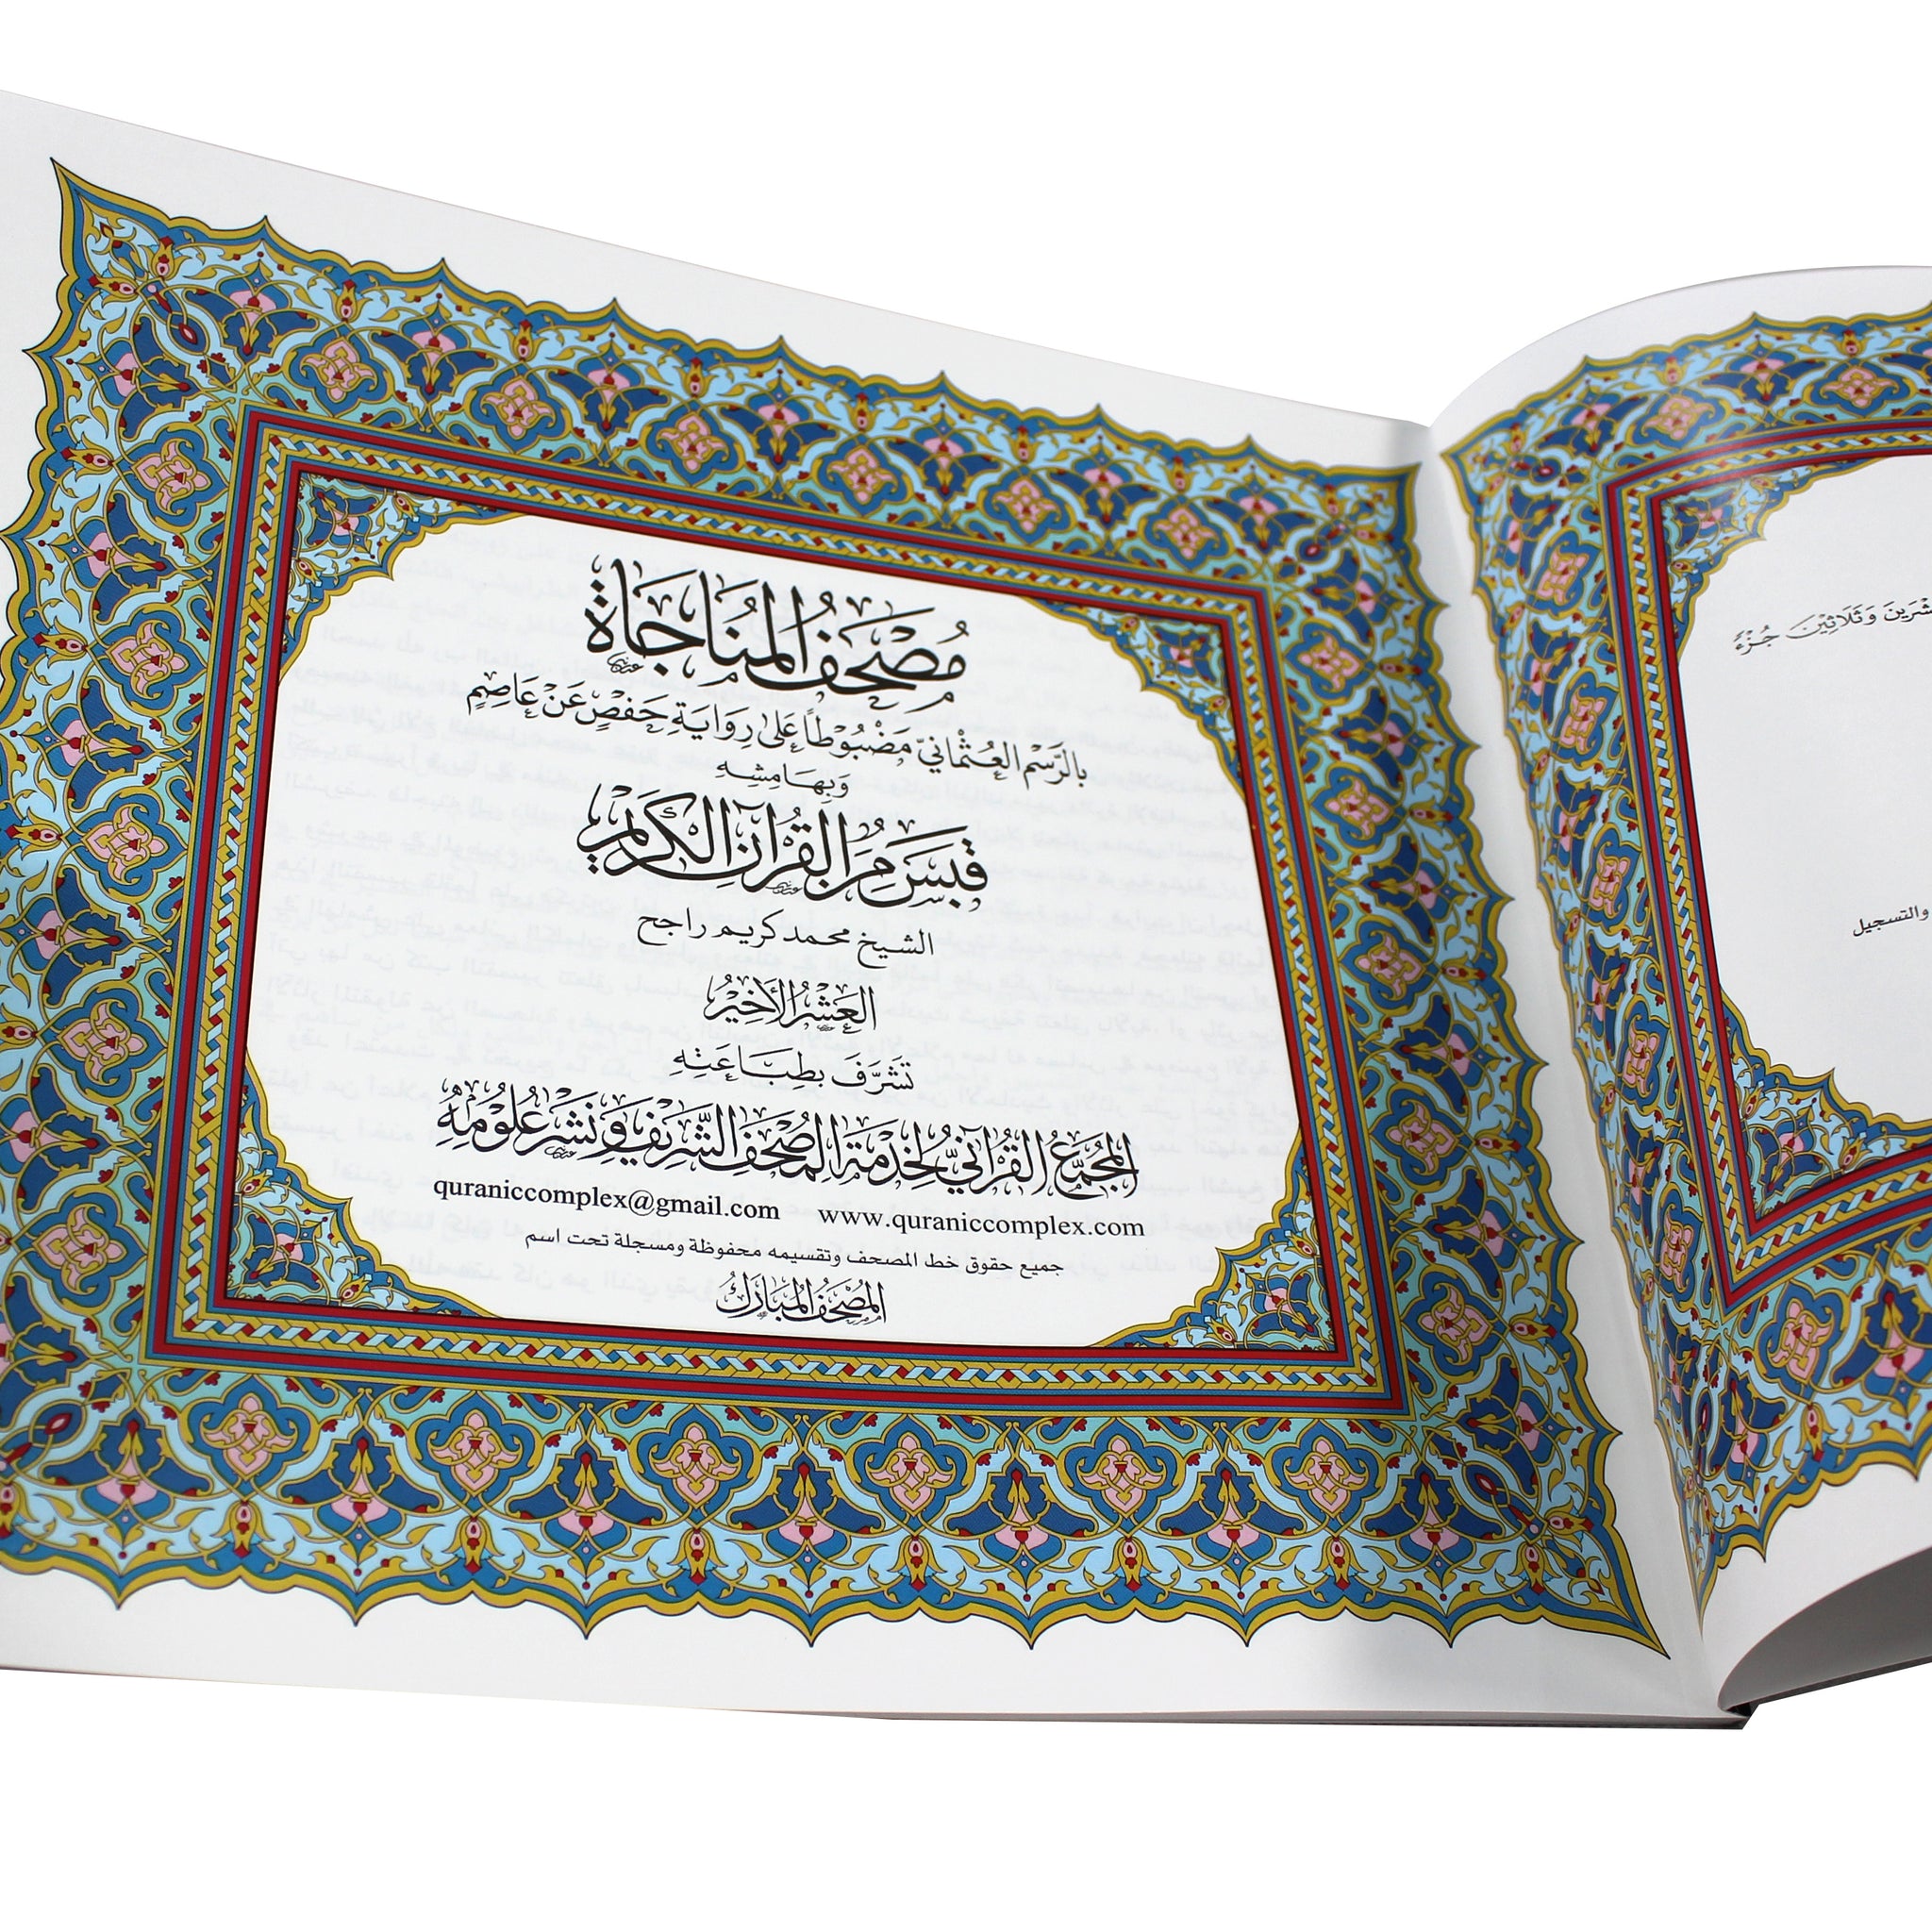 مُصْحَفُ الْمُنَاجَاة
بِالرَّسْمِ الْعُثْمَانِيّ مَضْبُوطاً عَلَى رِوَايَةِ حَفْصٍ عَنْ عَاصِمٍ
وَبِهَامِشِهِ
قَبَسٌ مِنَ الْقُرْآنِ الْكَرِيْمِ
الشيخ محمد كريم راجح
العَشْرُ الأَخِيْرُ
تَشَرَّفَ بِطِبَاعَتِهِ
الْمُجَمَّعُ الْقُرْآنِيُّ لِخِدْمَةِ الْمُصْحَفِ الشَّرِيْفِ وَنَشْرِ عُلُومِهِ
quraniccomplex@gmail.com www.quraniccomplex.com
جميع حقوق خط المصحف وتقسيمه محفوظة ومسجلة تحت اسم
الْمُصْحَفُ الْمُبَارَكُ
وَثَلَاثِيْنَ جُزْءً
والتسجيل